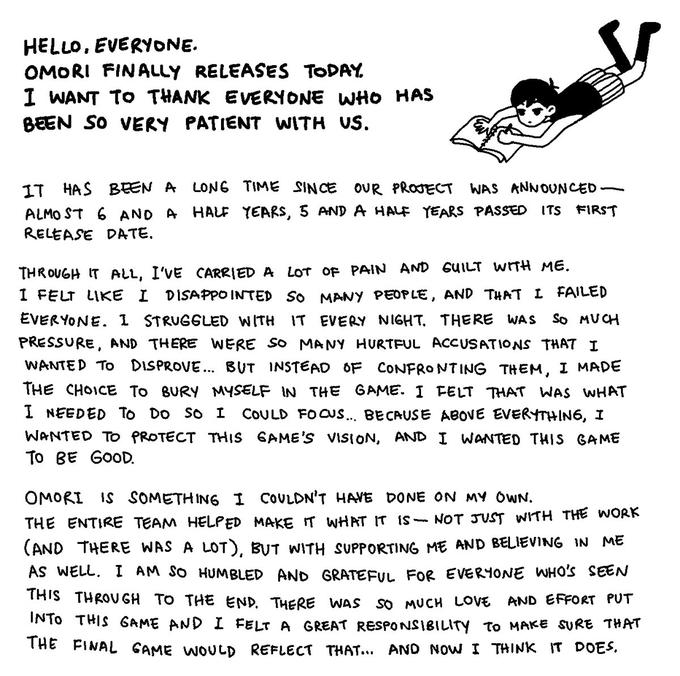 HELLO, EVERYONE.
OMORI FINALLY RELEASES TODAY.
I WANT TO THANK EVERYONE WHO HAS
BEEN SO VERY PATIENT WITH US.
IT HAS BEEN A LONG TIME SINCE OUR PROJECT WAS ANNOUNCED—
ALMOST 6 AND A HALF YEARS, 5 AND A HALF YEARS PASSED ITS FIRST
RELEASE DATE.
THROUGH IT ALL, I'VE CARRIED A LOT OF PAIN AND GUILT WITH ME.
I FELT LIKE I DISAPPOINTED SO MANY PEOPLE, AND THAT I FAILED
EVERYONE. I STRUGGLED WITH IT EVERY NIGHT. THERE WAS SO MUCH
PRESSURE, AND THERE WERE SO MANY HURTFUL ACCUSATIONS THAT I
WANTED TO DISPROVE... BUT INSTEAD OF CONFRONTING THEM, I MADE
THE CHOICE TO BURY MYSELF IN THE GAME. I FELT THAT WAS WHAT
I NEEDED TO DO SO I COULD FOCUS... BECAUSE ABOVE EVERYTHING, I
WANTED TO PROTECT THIS GAME'S VISION, AND I WANTED THIS GAME
TO BE GOOD.
OMORI IS SOMETHING I COULDN'T HAVE DONE ON MY OWN.
THE ENTIRE TEAM HELPED MAKE IT WHAT IT IS— NOT JUST WITH THE WORK
(AND THERE WAS A LOT), BUT WITH SUPPORTING ME AND BELIEVING IN ME
AS WELL. I AM SO HUMBLED AND GRATEFUL FOR EVERYONE WHO'S SEEN
THIS THROUGH TO THE END. THERE WAS SO MUCH LOVE AND EFFORT PUT
INTO THIS GAME AND I FELT A GREAT RESPONSIBILITY TO MAKE SURE THAT
THE FINAL GAME WOULD REFLECT THAT... AND NOW I THINK IT DOES.